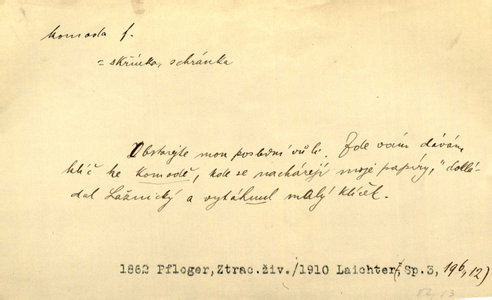 komoda f.
= skřínka, schránka
Obstarejte mou poslední vůli. Zde vám dávám
klíč ke komodě, kde se nacházejí moje papíry," dollo-
dal Lážnický a vytáhnul malý klíček.
1862 Pfleger, Ztrac.živ./1910 Laichter/, Sp.3, 196, 12)